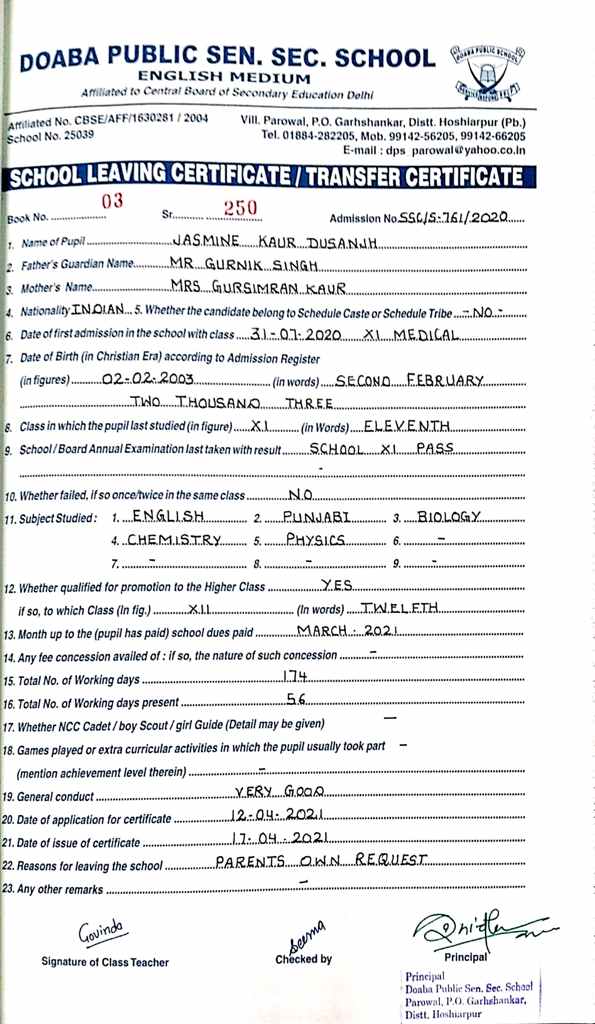 DOABA PUBLIC SEN. SEC. SCHOOL
ENGLISH MEDIUM
Affiliated to Central Board of Secondary Education Delhi
DOABA PUBLIC SCHOOL
Affiliated No. CBSE/AFF/1630281 / 2004
School No. 25039
Vill. Parowal, P.O. Garhshankar, Distt. Hoshiarpur (Pb.)
Tel. 01884-282205, Mob. 99142-56205, 99142-66205
E-mail : dps_parowal@yahoo.co.in
SCHOOL LEAVING CERTIFICATE / TRANSFER CERTIFICATE
Book No. 03 Sr. 250 Admission No. SSC/S-761/2020
1. Name of Pupil JASMINE KAUR DUSANJH
2. Father's Guardian Name MR GURNIK SINGH
3. Mother's Name MRS GURSIMRAN KAUR
4. Nationality INDIAN 5. Whether the candidate belong to Schedule Caste or Schedule Tribe - NO -
6. Date of first admission in the school with class 31-07-2020 XI MEDICAL
7. Date of Birth (in Christian Era) according to Admission Register
(in figures) 02-02-2003 (in words) SECOND FEBRUARY
TWO THOUSAND THREE
8. Class in which the pupil last studied (in figure) XI (in Words) ELEVENTH
9. School / Board Annual Examination last taken with result SCHOOL XI PASS
-
10. Whether failed, if so once/twice in the same class NO
11. Subject Studied : 1. ENGLISH 2. PUNJABI 3. BIOLOGY
4. CHEMISTRY 5. PHYSICS 6. -
7. - 8. - 9. -
12. Whether qualified for promotion to the Higher Class YES
if so, to which Class (In fig.) XII (In words) TWELFTH
13. Month up to the (pupil has paid) school dues paid MARCH - 2021
14. Any fee concession availed of : if so, the nature of such concession -
15. Total No. of Working days 174
16. Total No. of Working days present 56
17. Whether NCC Cadet / boy Scout / girl Guide (Detail may be given) -
18. Games played or extra curricular activities in which the pupil usually took part -
(mention achievement level therein) -
19. General conduct VERY GOOD
20. Date of application for certificate 12-04-2021
21. Date of issue of certificate 17-04-2021
22. Reasons for leaving the school PARENTS OWN REQUEST
23. Any other remarks -
Govinda
Seema
Signature of Class Teacher
Checked by
Principal
Principal
Doaba Public Sen. Sec. School
Parowal, P.O. Garhshankar,
Distt. Hoshiarpur